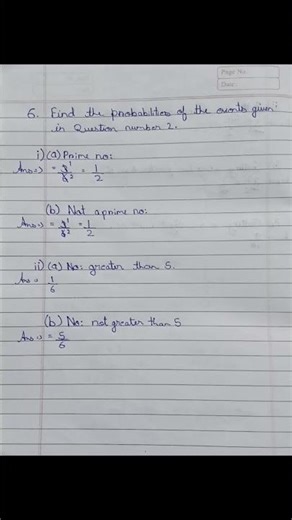 Page No.
Date
6. Find the probabilities of the events given
in Question number 2.
i) (a) Prime no:
Ans=) = 3¹/6² = 1/2
(b) Not a prime no:
Ans=) = 3¹/6² = 1/2
ii) (a) No: greater than 5.
Ans = 1/6
(b) No: not greater than 5
Ans => = 5/6